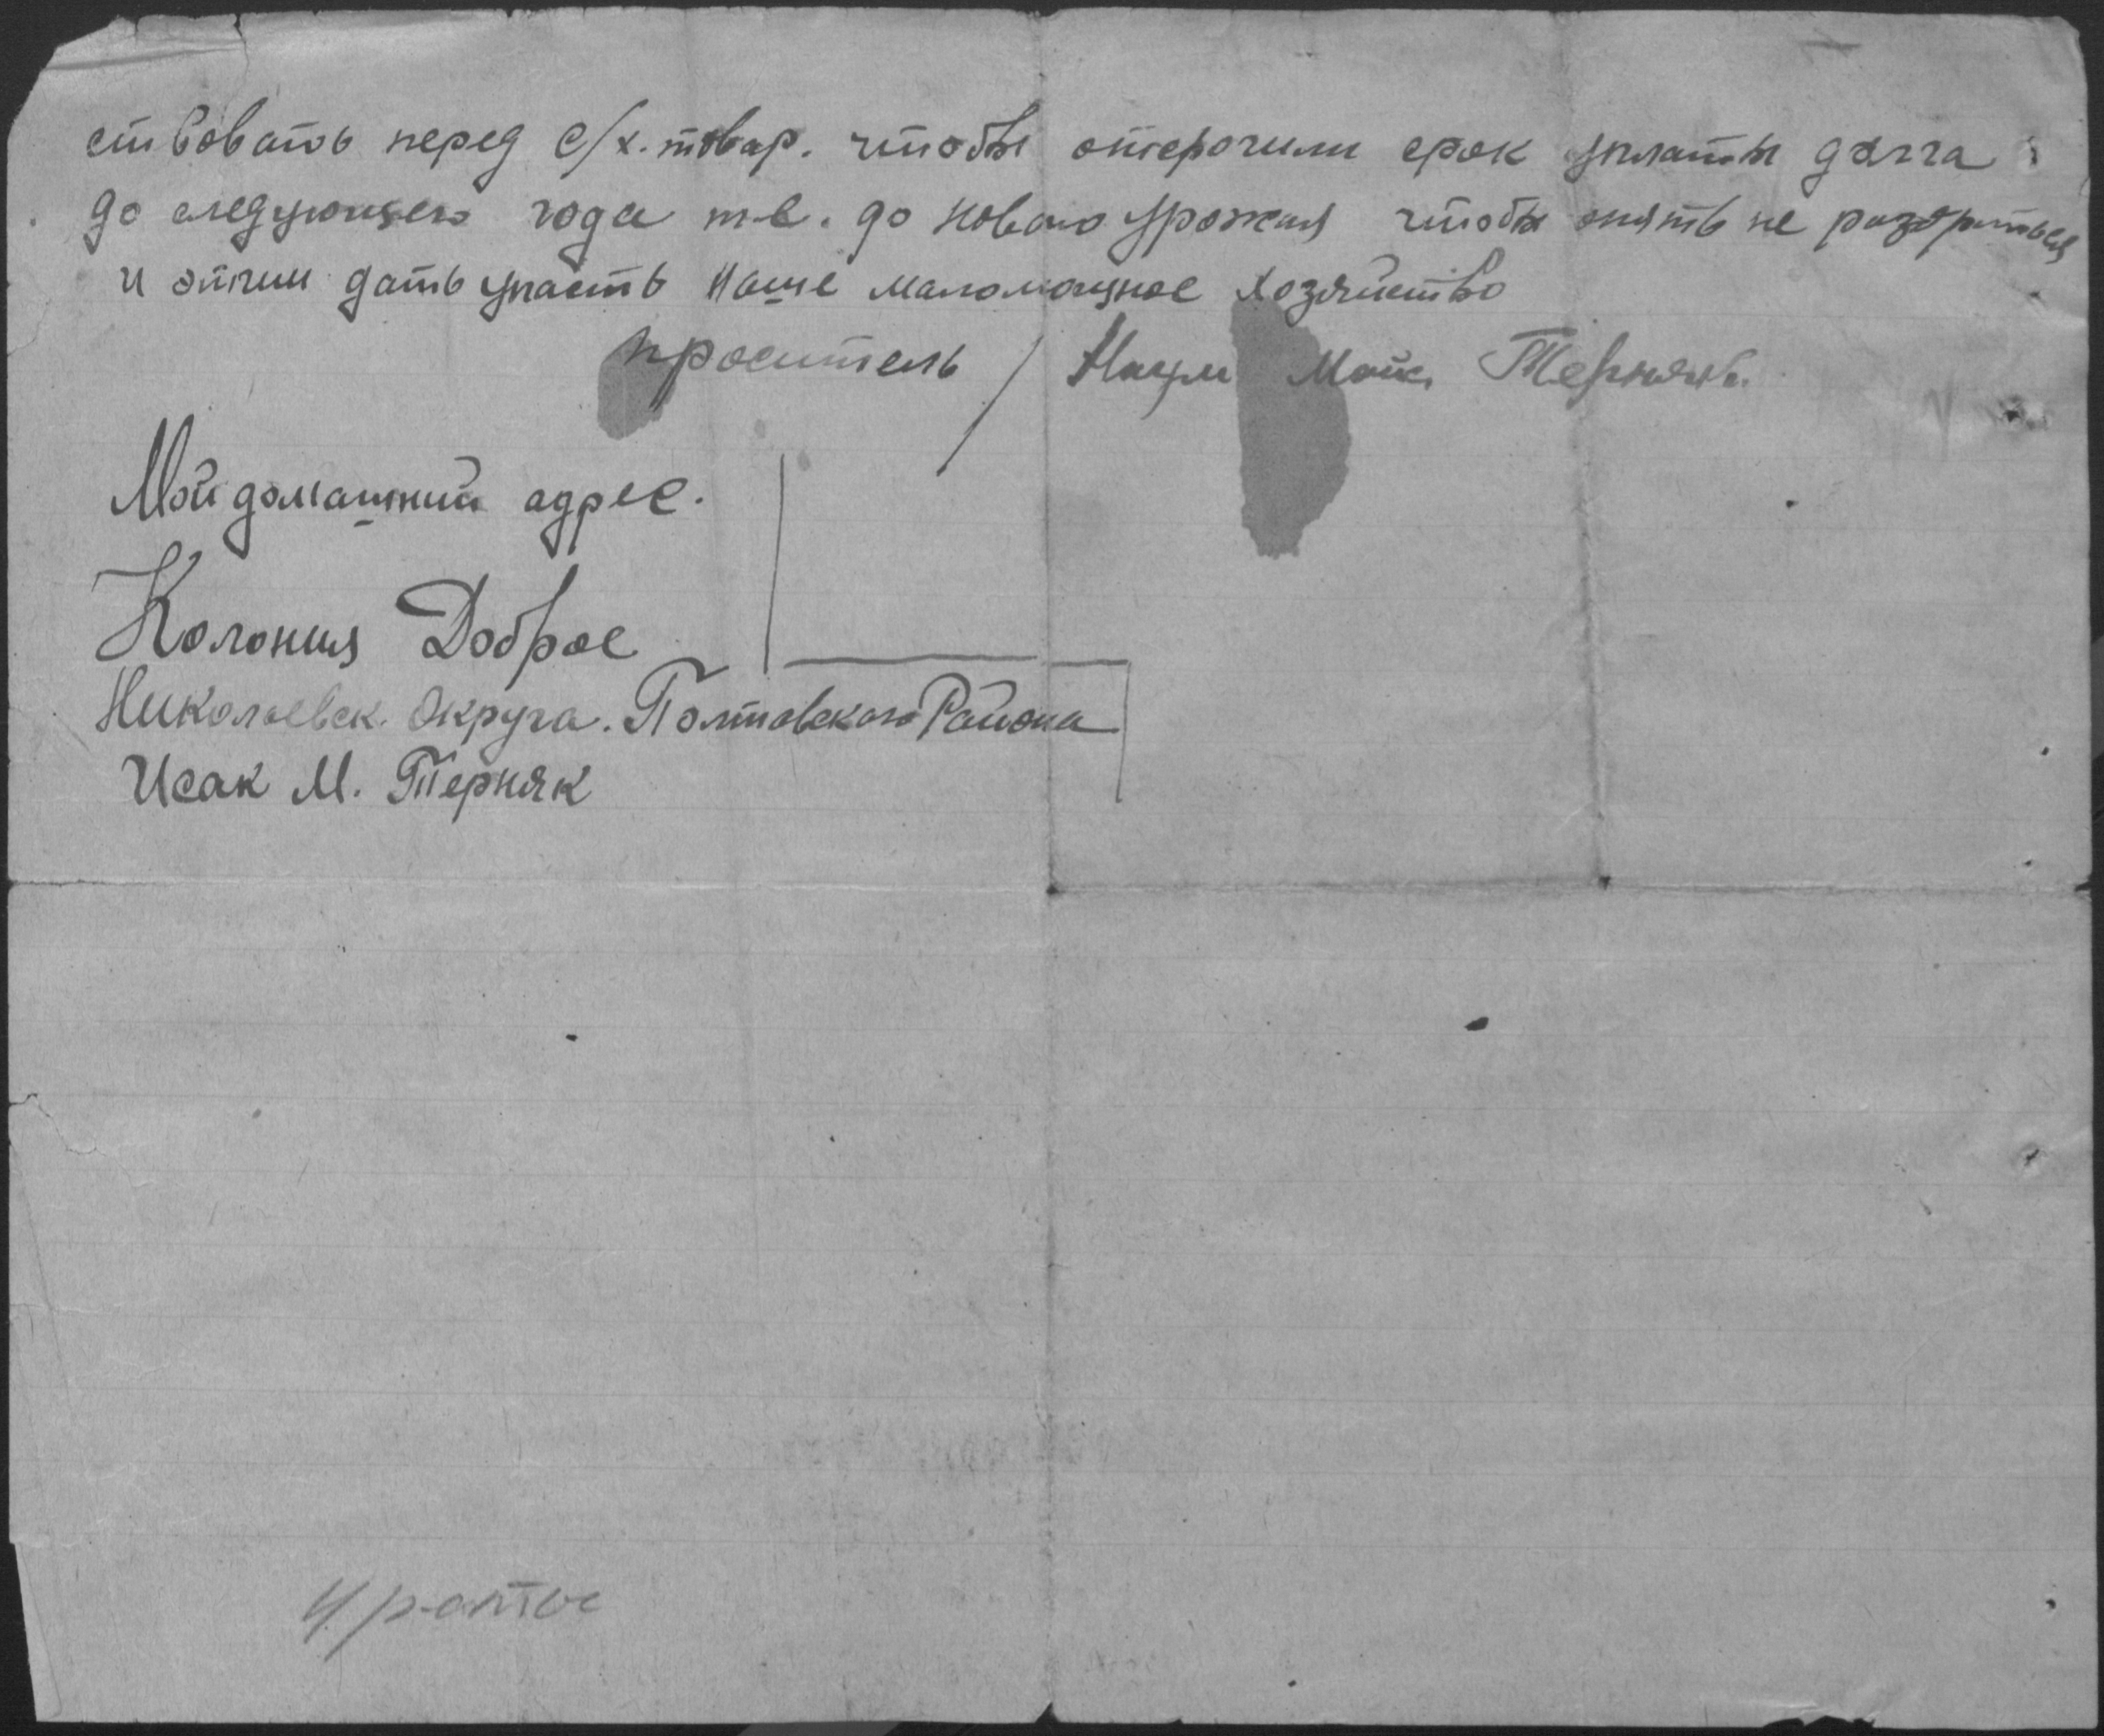 ствовать перед с/х. товар. чтобы отсрочили срок уплаты долга
до следующего года т.е. до нового урожая чтобы опять не разориться
и этим дать упасть наше маломощное хозяйство
проситель / Наум Терняк
Мой домашний адрес.
Колония Доброе
Николаевск. Округа. Полтовского Района
Исак М. Терняк